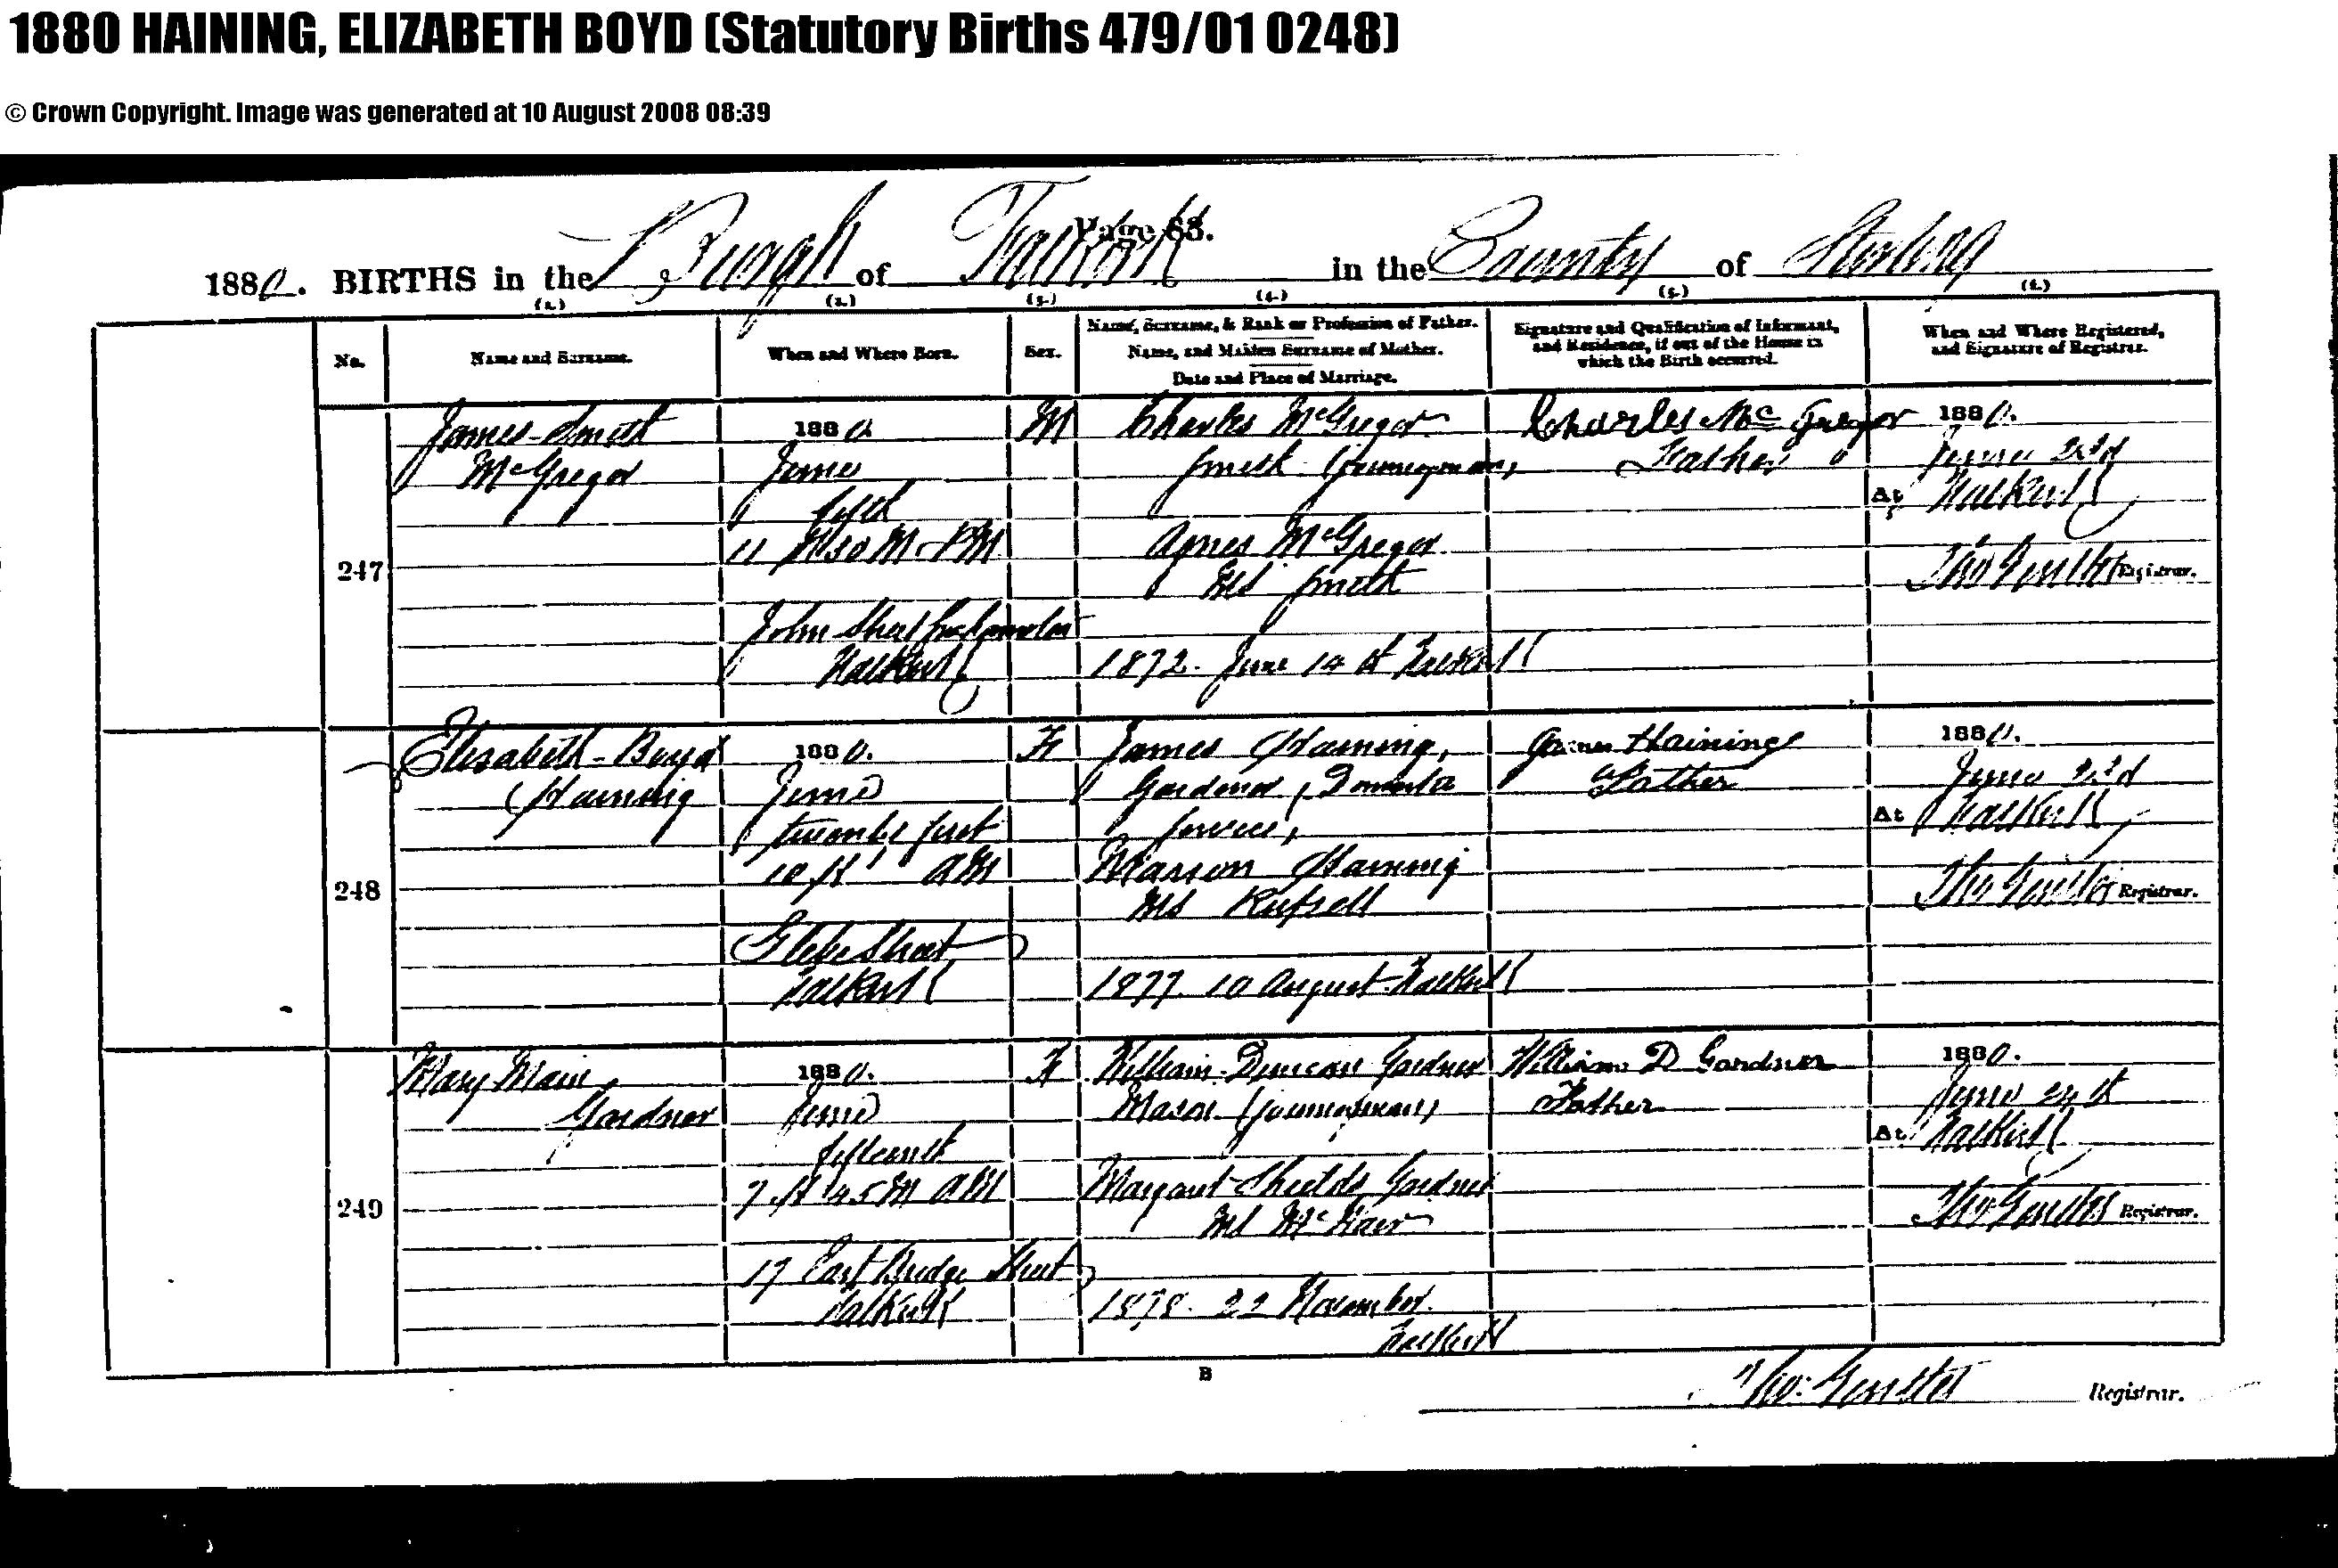 1880 HAINING, ELIZABETH BOYD (Statutory Births 479/01 0248)
© Crown Copyright. Image was generated at 10 August 2008 08:39
Page 83.
1880. BIRTHS in the Burgh of Falkirk in the County of Stirling
(1.) (2.) (3.) (4.) (5.) (6.)
No.
Name and Surname.
When and Where Born.
Sex.
Name, Surname, & Rank or Profession of Father.
Name, and Maiden Surname of Mother.
Date and Place of Marriage.
Signature and Qualification of Informant,
and Residence, if out of the House in
which the Birth occurred.
When and Where Registered,
and Signature of Registrar.
247
James Smith
McGregor
1880
June
fifth
11 H 30 M PM
John Street
Falkirk
M
Charles McGregor
Smith (journeyman)
Agnes McGregor
MS Smith
1872. June 14th Falkirk
Charles McGregor
Father
1880.
June 23rd
At Falkirk
Registrar.
248
Elizabeth-Boyd
Haining
1880.
June
twenty first
10 H AM
Glebe Street
Falkirk
F
James Haining,
Gardener, Domestic
Service,
Marion Haining
MS Russell
1877. 10 August Falkirk
James Haining
Father
1880.
June 23rd
At Falkirk
Registrar.
249
Mary Main
Gardner
1880.
June
fifteenth
7 H 45 M AM
17 East Bridge Street
Falkirk
F
William Duncan Gardner
Mason (journeyman)
Margaret Shields Gardner
MS McNair
1878. 22 November.
Falkirk
William D Gardner
Father
1880.
June 24th
At Falkirk
Registrar.
B
Registrar.